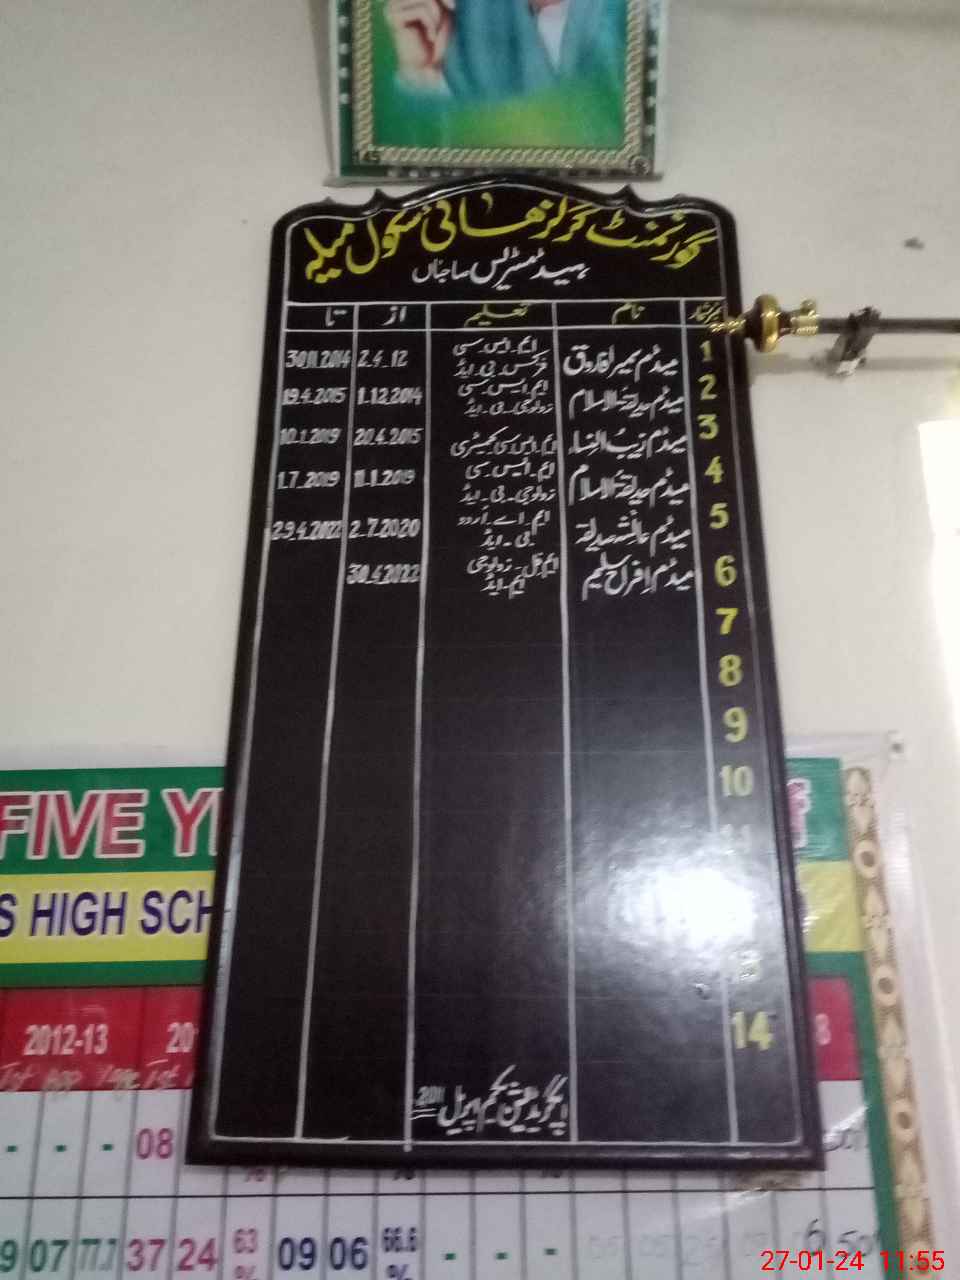 گورنمنٹ گرلز ھائی سکول میلہ
ہیڈ مسٹریس صاحباں
نمبرشمار نام تعلیم از تا
1 میڈم سمیرا فاروق ایم۔ایس۔سی فزکس۔بی۔ایڈ 2.4.12 30.11.2014
2 میڈم حدیقۃ الاسلام ایم۔ایس۔سی زولوجی۔بی۔ایڈ 1.12.2014 19.4.2015
3 میڈم زیب النساء ایم۔ایس سی کیمسٹری 20.4.2015 10.1.2019
4 میڈم حدیقۃ الاسلام ایم۔ایس۔سی زولوجی۔بی۔ایڈ 11.1.2019 1.7.2019
5 میڈم عائشہ صدیقہ ایم۔اے۔اُردو بی۔ایڈ 2.7.2020 29.4.2022
6 میڈم افراح سلیم ایم۔فل۔زولوجی ایم۔ایڈ 30.4.2022
7
8
9
10
13
14
اپگریڈیشن یکم اپریل 2011
FIVE
HIGH SCH
2012-13 20
- - - 08
07 77.7 37 24 63 % 09 06 66.6 % - - -
27-01-24 11:55